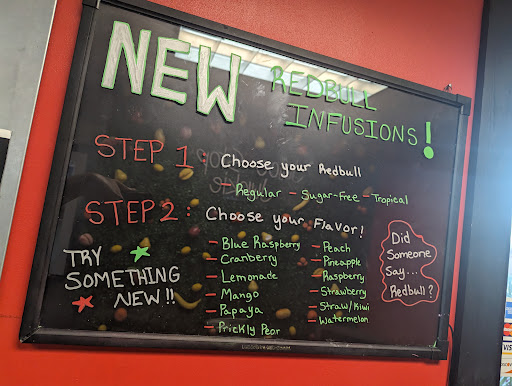 NEW
REDBULL
INFUSIONS!
STEP 1: Choose your Redbull
- Regular - Sugar-Free - Tropical
STEP 2: Choose your Flavor!
- Blue Raspberry
- Cranberry
- Lemonade
- Mango
- Papaya
- Prickly Pear
- Peach
- Pineapple
- Raspberry
- Strawberry
- Straw/Kiwi
- Watermelon
TRY
SOMETHING
NEW!!
Did
Someone
Say...
Redbull?
VISA